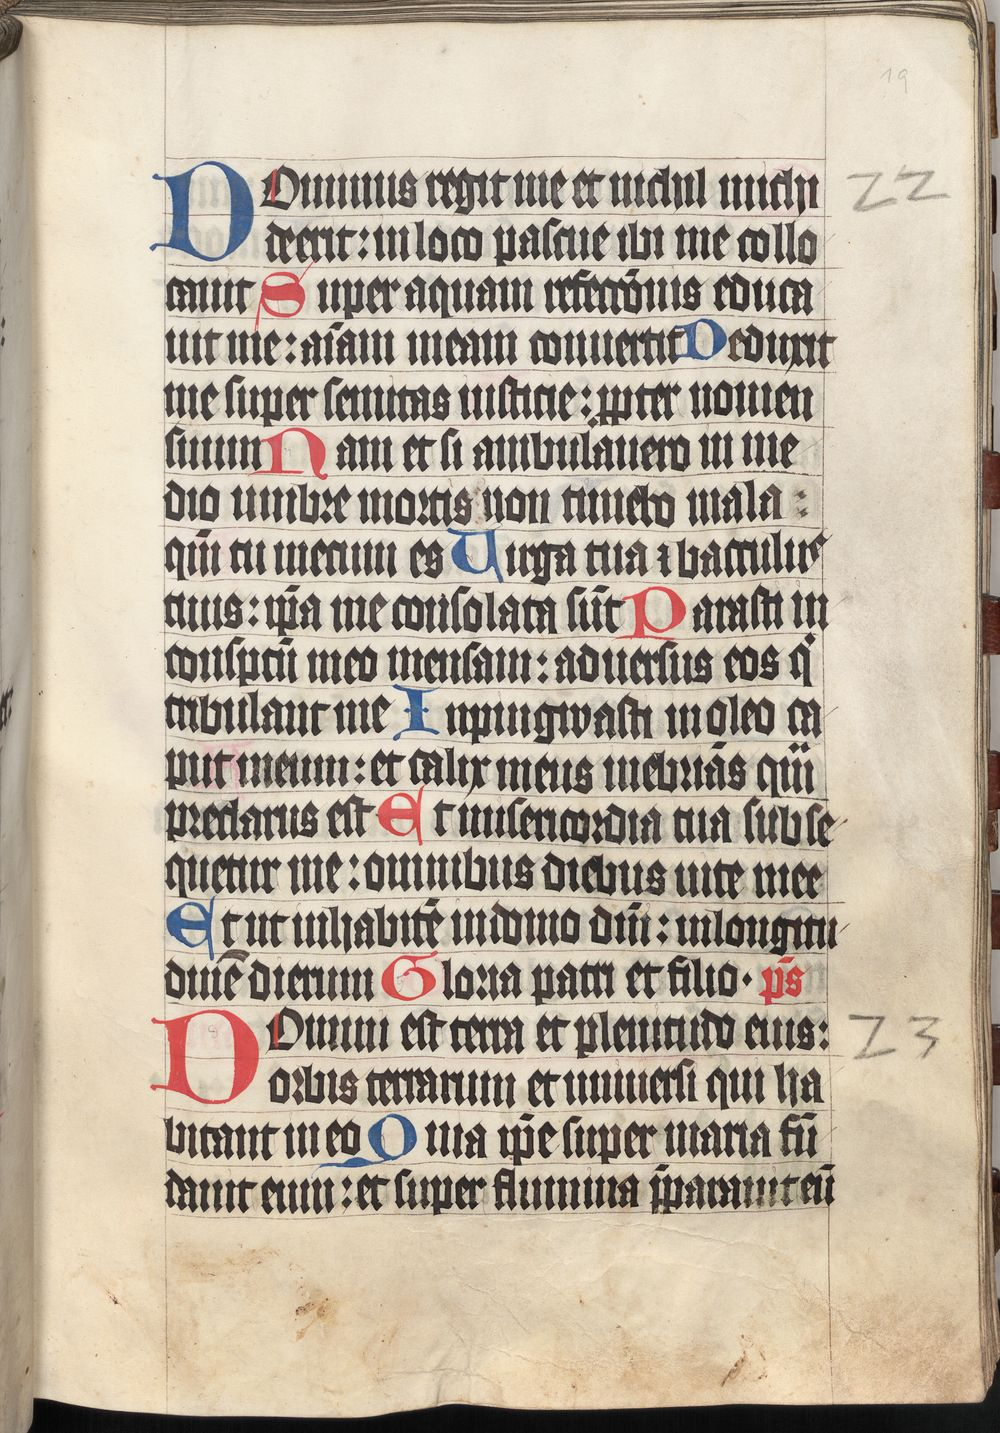 19
DOminus regit me et nichil michi 22
deerit: in loco pascue ibi me collo
cauit Super aquam refectōnis educa
uit me: aīam meam conuertit Deduxit
me super semitas iusticie: ꝓpter nomen
suum Nam et si ambulauero in me
dio umbre mortis non timebo mala:
qm̄ tu mecum es Uirga tua ⁊ baculus
tuus: ip̄a me consolata sūt Parasti in
conspctū meo mensam: aduersus eos qͥ
tribulant me Inpingwasti in oleo ca
put meum: et calix meus inebriās qm̄
preclarus est Et misericordia tua subse
quetur me: omnibus diebus uite mee
Et ut inhabitē in domo dn̄i: in longitu
dinē dierum Gloria patri et filio. ps̄
DOmini est terra et plenitudo eius: 23
orbis terrarum et uniuersi qui ha
bitant in eo Quia ip̄e super maria fū
dauit eum: et super flumina p̄parauit eū